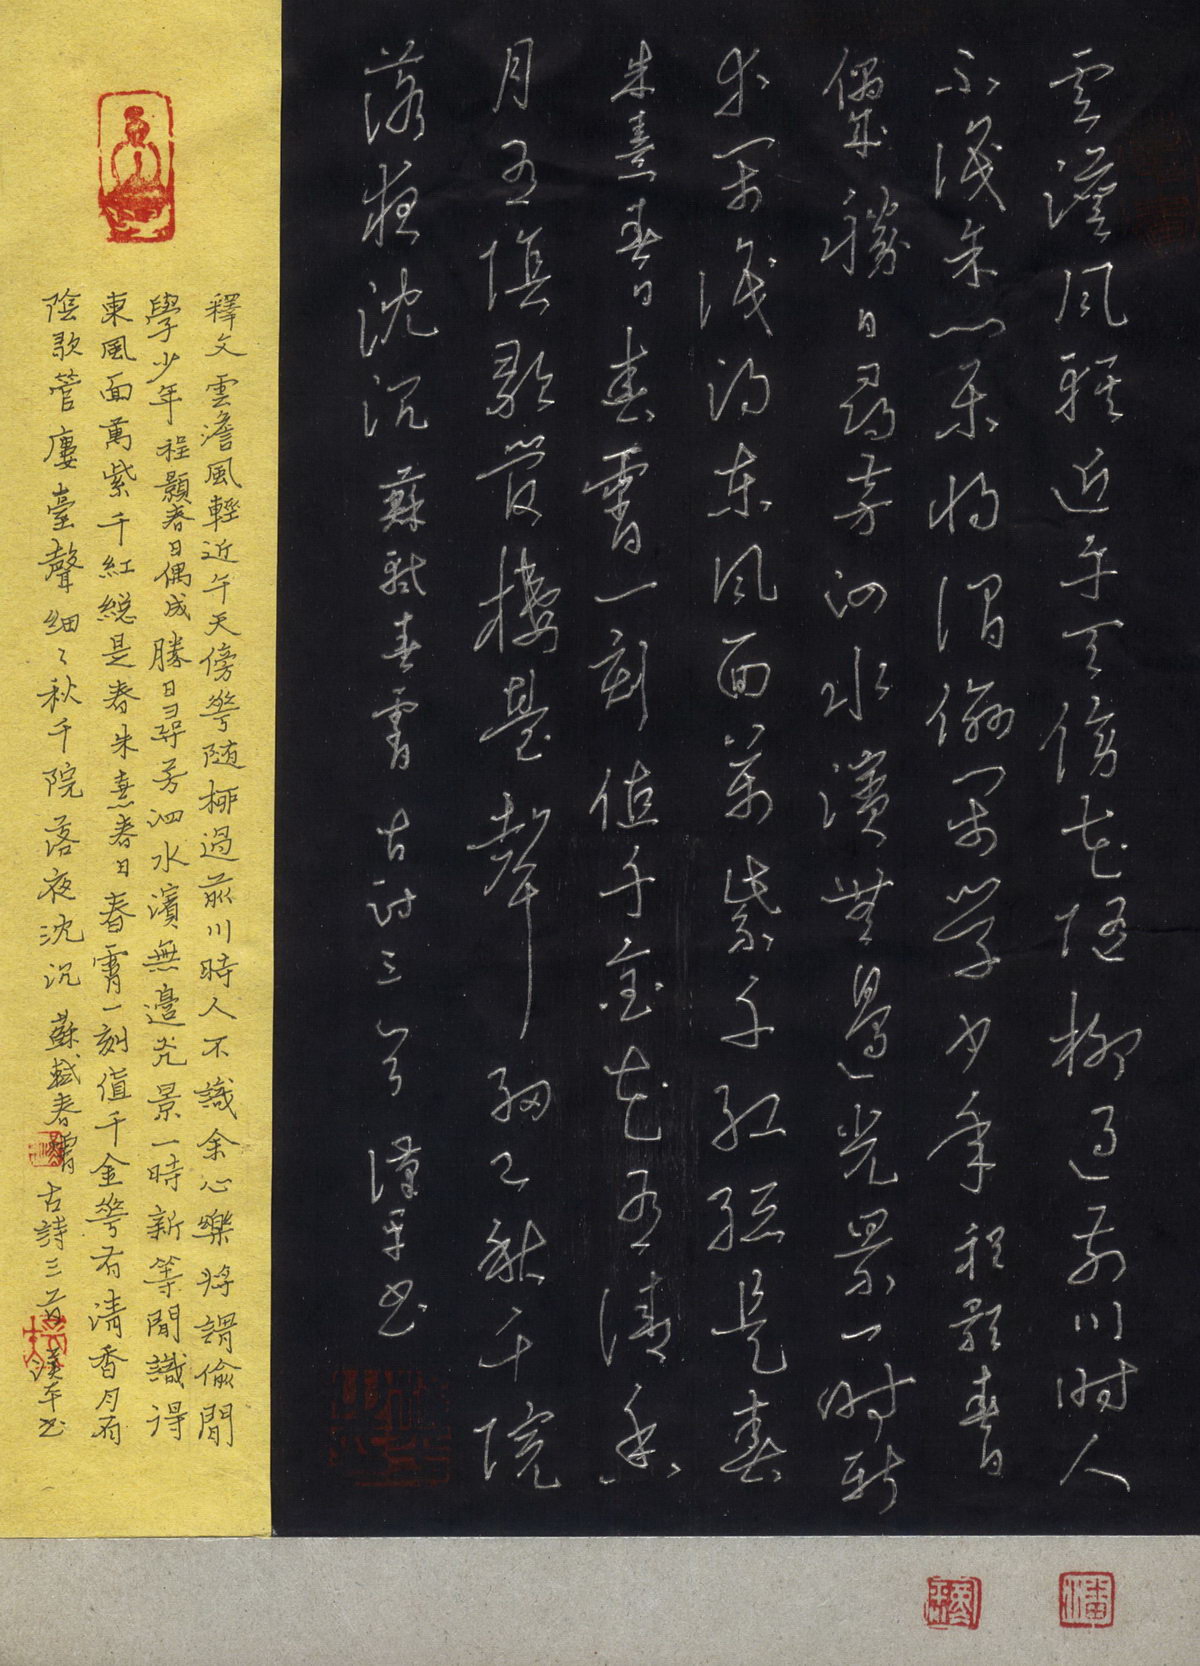 雲澹風輕近午天傍花隨柳過前川時人
不識余心樂將謂偷閒學少年程顥春日
偶成勝日尋芳泗水濱無邊光景一時新
等閒識得東風面萬紫千紅總是春
朱熹春日春宵一刻值千金花有清香
月有陰歌管樓臺聲細々秋千院
落夜沈沉蘇軾春宵古詩三首漢平书
釋文雲澹風輕近午天傍華随栁過前川時人不識余心樂將謂偷閒
學少年程顥春日偶成勝日尋芳泗水濱無邊光景一時新等閒識得
東風面萬紫千紅總是春朱熹春日春宵一刻值千金華有清香月有
陰歌管廔臺聲細々秋千院落夜沈沉蘇軾春宵古詩三首漢平书